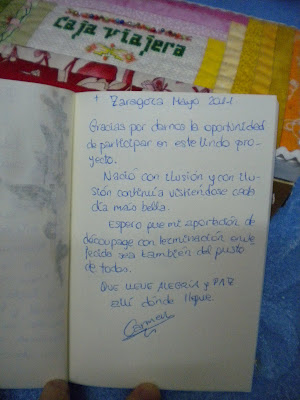 Caja viajera
+ Zaragoza Mayo 2011
Gracias por darnos la oportunidad
de participar en este lindo pro-
yecto.
Nació con ilusión y con ilu-
sión continúa vistiendose cada
día más bella.
Espero que mi aportación de
découpage con terminación
tejido sea también del gusto
de todas.
QUE LLEVE ALEGRÍA Y PAZ
allí dónde llegue
Carmen